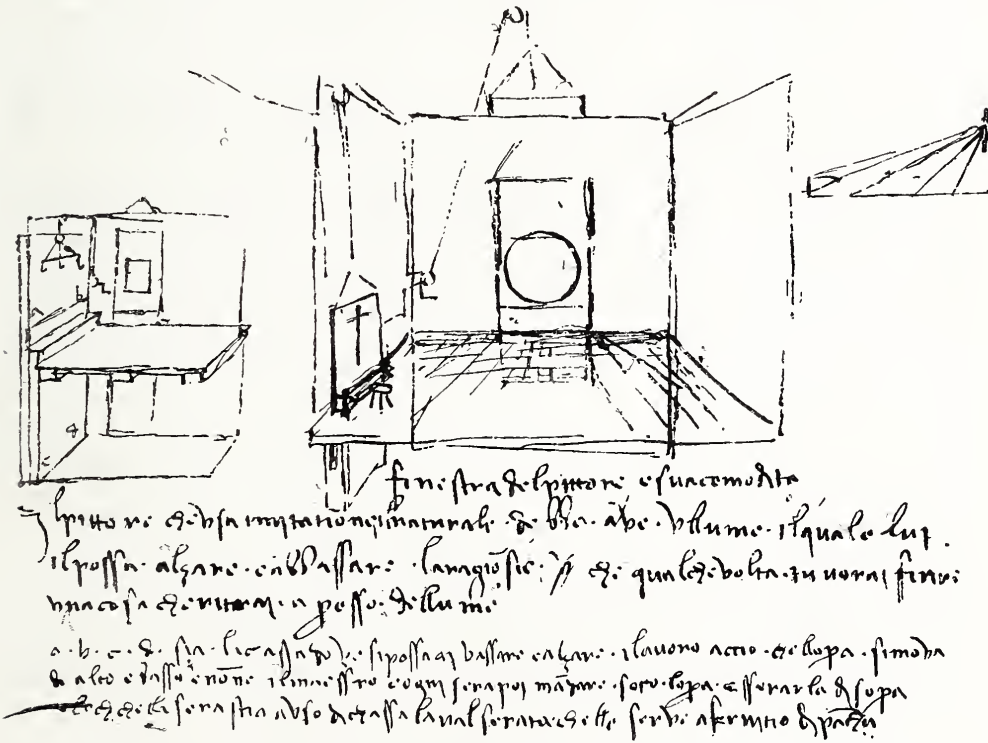 finestra del pittore e sua comodita
Il pittore che usa imitatione naturale debbe ave un lume il quale lui
il possa alzare e abbassare la ragio si e che qualche volta tu vorai finire
una cosa che ritrai a posso del lume
a b c d sia la cassa dove si possa bassare e alzare il lavoro accio che llopa si mova
da alto e basso e none il maesstro e ogni sera poi mandare soto lopa e sserarla di sopa
sera stia a uso di cassa la qual serata che lle serve a servitio di